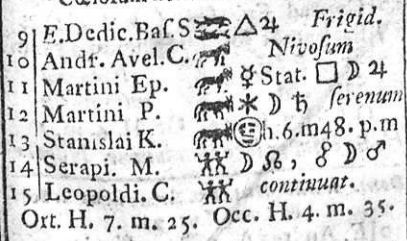 9 E.Dedic.Bas.S ♓ △ ♃ Frigid.
10 Andr. Avel. C. ♈ Nivosum
11 Martini Ep. ♈ ☿ Stat. □ ☽ ♃
12 Martini P. ♉ ⚹ ☽ ♄ serenum
13 Stanislai K. ♉ h. 6. m48. p. m
14 Serapi. M. ♊ ☽ ☊, ☍ ☽ ♂
15 Leopoldi. C. ♊ continuat.
Ort. H. 7. m. 25. Occ. H. 4. m. 35.